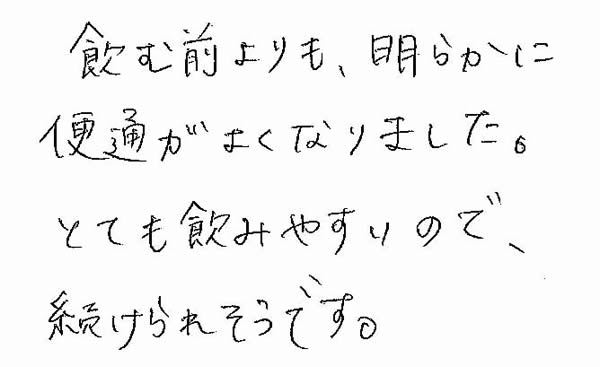 飲む前よりも、明らかに
便通がよくなりました。
とても飲みやすいので、
続けられそうです。